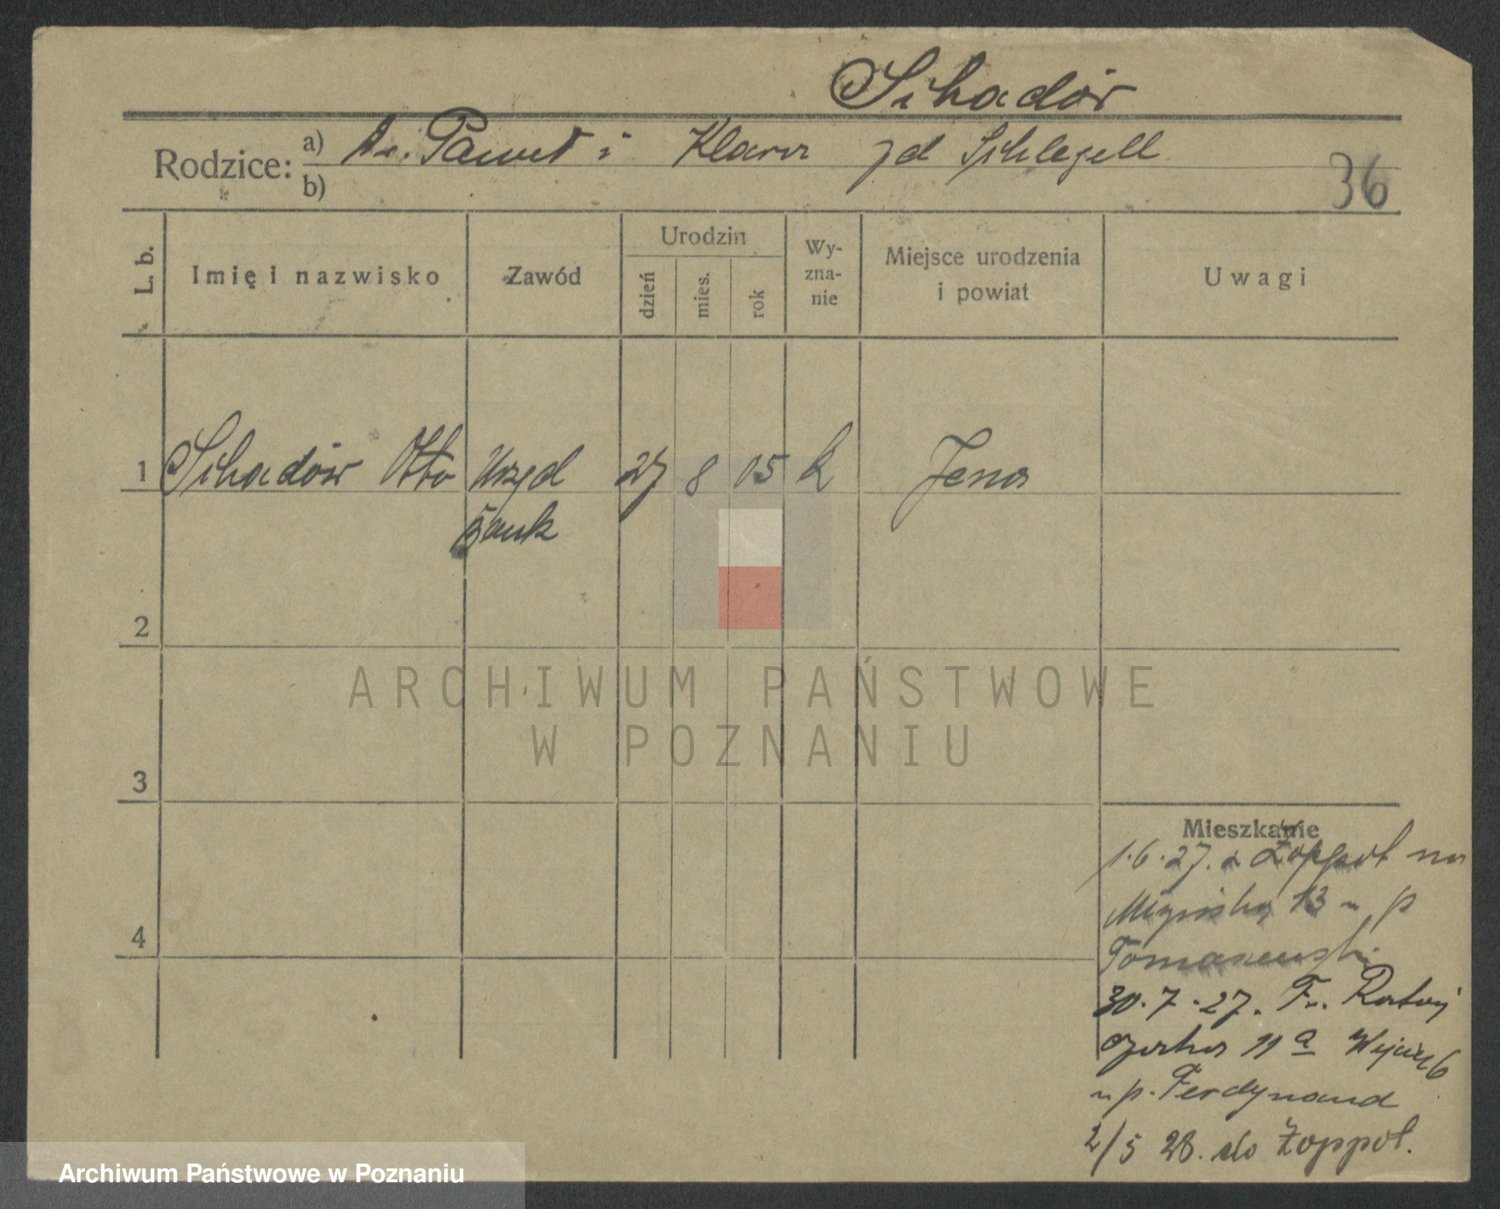 Schadör
Rodzice: a) Dr. Paweł i Klara zd Schlegell
b)
36
L. b.
Imię i nazwisko
Zawód
Urodzin
dzień
mies.
rok
Wy-
zna-
nie
Miejsce urodzenia
i powiat
Uwagi
1 Schadöw Otto Urzęd 27 8 05 k Jena
bank
2
ARCHIWUM PAŃSTWOWE
W POZNANIU
3
Mieszkanie
1.6.27. z Zoppot na
13 u p
4
Tomaszewski
30.7.27. Fr. Rataj
czaka 11 a
u p. Ferdynand
2/5 28. do Zoppot.
Archiwum Państwowe w Poznaniu